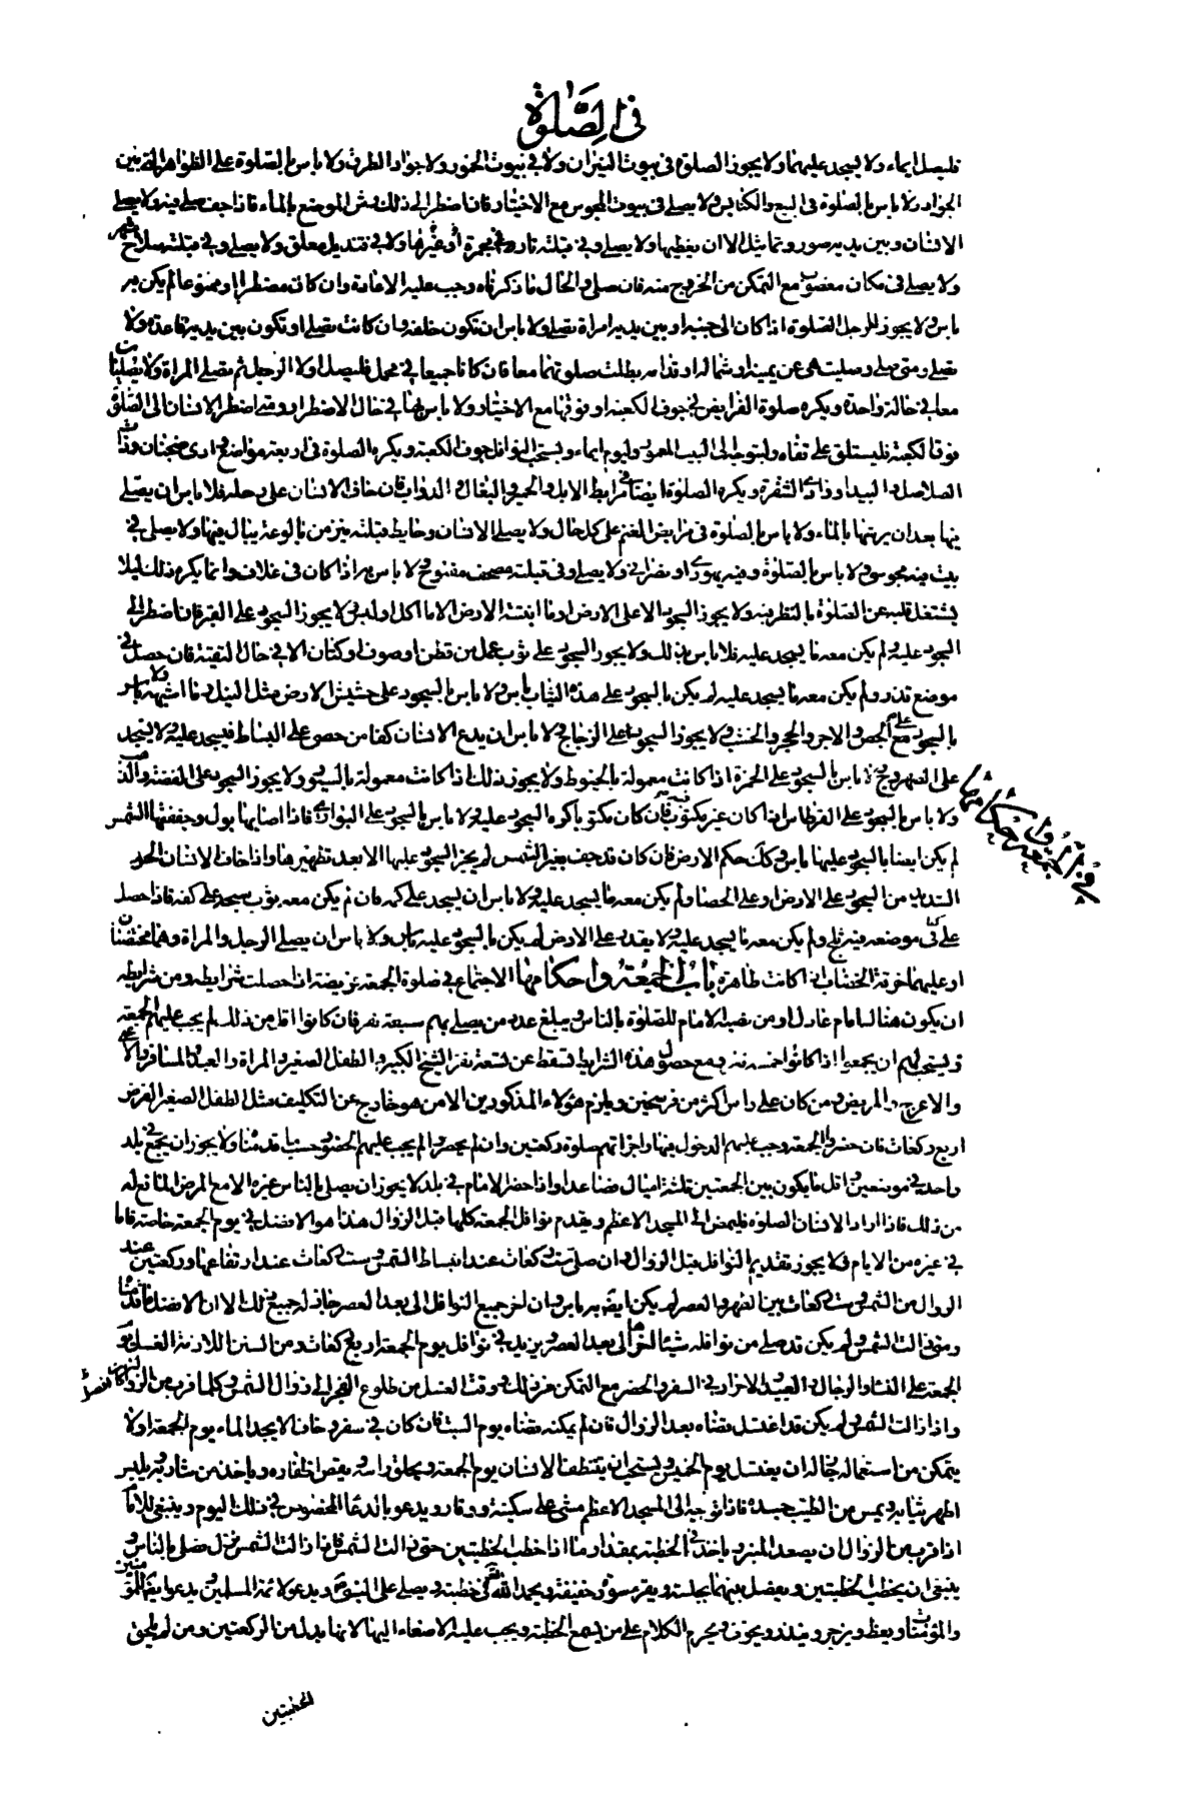 فى الصلوة
فليصل ايماء ولا يسجد عليهما ولا يجوز الصلوة فى بيوت النيران ولا فى بيوت الخمور ولا جواد الطرق ولا باس بالصلوة على الظواهر التى بين
الجواد ولا باس بالصلوة فى البيع والكنايس ولا يصلى فى بيوت المجوس مع الاختيار فان اضطر الى ذلك رش الموضع بالماء فاذا جف صلى فيه ولا يصلى
الانسان وبين يديه صور وتماثيل الا ان يغطيها ولا يصلى وفى قبلته نار فى مجمرة او غيرها ولا فى قنديل معلق ولا يصلى وفى قبلته سلاح مشهر
ولا يصلى فى مكان مغصوب مع التمكن من الخروج منه فان صلى والحال ما ذكرناه وجب عليه الاعادة وان كان مضطرا او ممنوعا لم يكن به
باس ولا يجوز للرجل الصلوة اذا كان الى جنبه او بين يديه امراة تصلى ولا باس ان تكون خلفه وان كانت تصلى او تكون بين يديه قاعدة ولا
تصلى ومتى صلى وصلت هى عن يمينه او شماله او قدامه بطلت صلوتهما معا فان كانا جميعا فى محمل فليصل اولا الرجل ثم تصلى المراة ولا يصليان
معا فى حالة واحدة ويكره صلوة الفرايض فى جوف الكعبة او فوقها مع الاختيار ولا باس بها فى حال الاضطرار ومتى اضطر الانسان الى الصلوة
فوق الكعبة فليستلق على قفاه وليتوجه الى البيت المعمور وليوم ايماء ويستحب النوافل جوف الكعبة ويكره الصلوة فى اربعة مواضع وادى ضجنان وذات
الصلاصل والبيداء ووادى الشقرة ويكره الصلوة ايضا فى مرابط الابل والحمير والبغال والدواب فان خاف الانسان على رحله فلا باس ان يصلى
فيها بعد ان يرشها بالماء ولا باس بالصلوة فى مرابض الغنم على كل حال ولا يصلى الانسان وحايط قبلته ينز من بالوعة يبال فيها ولا يصلى فى
بيت فيه مجوسى ولا باس بالصلوة وفيه يهودى او نصرانى ولا يصلى وفى قبلته مصحف مفتوح ولا باس به اذا كان فى غلاف وانما يكره ذلك ليلا
يشتغل قلبه عن الصلوة بالنظر فيه ولا يجوز السجود الا على الارض او ما انبتته الارض الا ما اكل او لبس ولا يجوز السجود على القير فان اضطر الى
السجود عليه ولم يكن معه ما يسجد عليه فلا باس بذلك ولا يجوز السجود على ثوب عمل من قطن او صوف او كتان الا فى حال التقية فان حصل فى
موضع قذر ولم يكن معه ما يسجد عليه لم يكن بالسجود على هذه الثياب باس ولا باس بالسجود على حشيش الارض مثل الثيل وما اشبهه ولا باس
بالسجود على الجص والاجر والحجر والخشب ولا يجوز السجود على الزجاج ولا باس ان يدع الانسان كفا من حصى على البساط فيسجد عليه ولا يسجد
على الصهروج ولا باس بالسجود على الخمرة اذا كانت معمولة بالخيوط ولا يجوز ذلك اذا كانت معمولة بالسيور ولا يجوز السجود على الفضة والذهب
ولا باس بالسجود على القرطاس اذا كان غير مكتوب فان كان مكتوبا كره السجود عليه ولا باس بالسجود على البوارى فاذا اصابها بول وجففتها الشمس
لم يكن ايضا بالسجود عليها باس وكك حكم الارض فان كان قد جف بغير الشمس لم يجز السجود عليها الا بعد تطهيرها واذا خاف الانسان الحر
الشديد من السجود على الارض او على الحصا ولم يكن معه ما يسجد عليه ولا باس ان يسجد على كمه فان لم يكن معه ثوب سجد على كفه فاذا حصل
فى موضع فيه ثلج ولم يكن معه ما يسجد عليه ولا يقدر على الارض لم يكن بالسجود عليه باس ولا باس ان يصلى الرجل والمراة وهما مختضبان
او عليهما خرقة الخضاب اذا كانت طاهرة باب الجمعة واحكامها الاجتماع فى صلوة الجمعة فريضة اذا حصلت شرايطه ومن شرايطه
ان يكون هناك امام عادل او من نصبه الامام للصلوة بالناس ويبلغ عدد من يصلى بهم سبعة نفر فان كانوا اقل من ذلك لم يجب عليهم الجمعة
ويستحب لهم ان يجمعوا اذا كانوا خمسة نفر ومع حصول هذه الشرايط تسقط عن تسعة نفر الشيخ الكبير والطفل الصغير والمراة والعبد والمسافر والاعمى
والاعرج والمريض ومن كان على راس اكثر من فرسخين ويلزم هؤلاء المذكورين الا من هو خارج عن التكليف مثل الطفل الصغير الفرض
اربع ركعات فان حضروا الجمعة وجب عليهم الدخول فيها واجزاتهم صلوة ركعتين وان لم يحضروا لم يجب عليهم الحضور حسب ما قدمناه ولا يجوز ان يجمع فى بلد
واحد فى موضعين واقل ما يكون بين الجمعتين ثلثة اميال فصاعدا واذا حضر الامام فى بلد لا يجوز ان يصلى بالناس غيره الا مع المرض المانع له
من ذلك فاذا اراد الانسان الصلوة فليمض الى المسجد الاعظم ويقدم نوافل الجمعة كلها قبل الزوال هذا هو الافضل فى يوم الجمعة خاصة فاما
فى غيره من الايام فلا يجوز تقديم النوافل قبل الزوال وان صلى ست ركعات عند انبساط الشمس وست ركعات عند ارتفاعها وركعتين عند
الزوال من الشمس وست ركعات بين الظهر والعصر لم يكن ايضا به باس وان اخر جميع النوافل الى بعد العصر جاز له جميع ذلك الا ان الافضل ما قدمناه
ومتى زالت الشمس ولم يكن قد صلى من نوافله شيئا اخرها الى بعد العصر ويزيد فى نوافل يوم الجمعة اربع ركعات ومن السنن اللازمة الغسل يوم
الجمعة على النساء والرجال والعبيد والاحرار فى السفر والحضر مع التمكن من ذلك ووقت الغسل من طلوع الفجر الى زوال الشمس وكلما قرب من الزوال كان افضل
واذا زالت الشمس ولم يكن قد اغتسل قضاه بعد الزوال فان لم يمكنه قضاه يوم السبت فان كان فى سفر وخاف الا يجد الماء يوم الجمعة او لا
يتمكن من استعماله بحال ان يغتسل يوم الخميس ويستحب ان يتنظف الانسان يوم الجمعة ويحلق راسه ويقص اظفاره وياخذ من شاربه ويلبس
اطهر ثيابه ويمس من الطيب جسده فاذا توجه الى المسجد الاعظم مشى على سكينة ووقار ويدعو بالدعاء المخصوص فى ذلك اليوم وينبغى للامام
اذا قرب من الزوال ان يصعد المنبر وياخذ فى الخطبة بمقدار ما اذا خطب الخطبتين حتى زالت الشمس فاذا زالت الشمس نزل فصلى بالناس
ينبغى ان يخطب الخطبتين ويفصل بينهما بجلسة ويقرء سورة خفيفة ويحمد الله فى خطبته ويصلى على النبى ويدعو لائمة المسلمين ويدعو ايضا للمؤمنين
والمؤمنات ويعظ ويزجر وينذر ويخوف ويحرم الكلام على من يسمع الخطبة ويجب عليه الاصغاء اليها لانها بدل من الركعتين ومن لم يلحق
الخطبتين